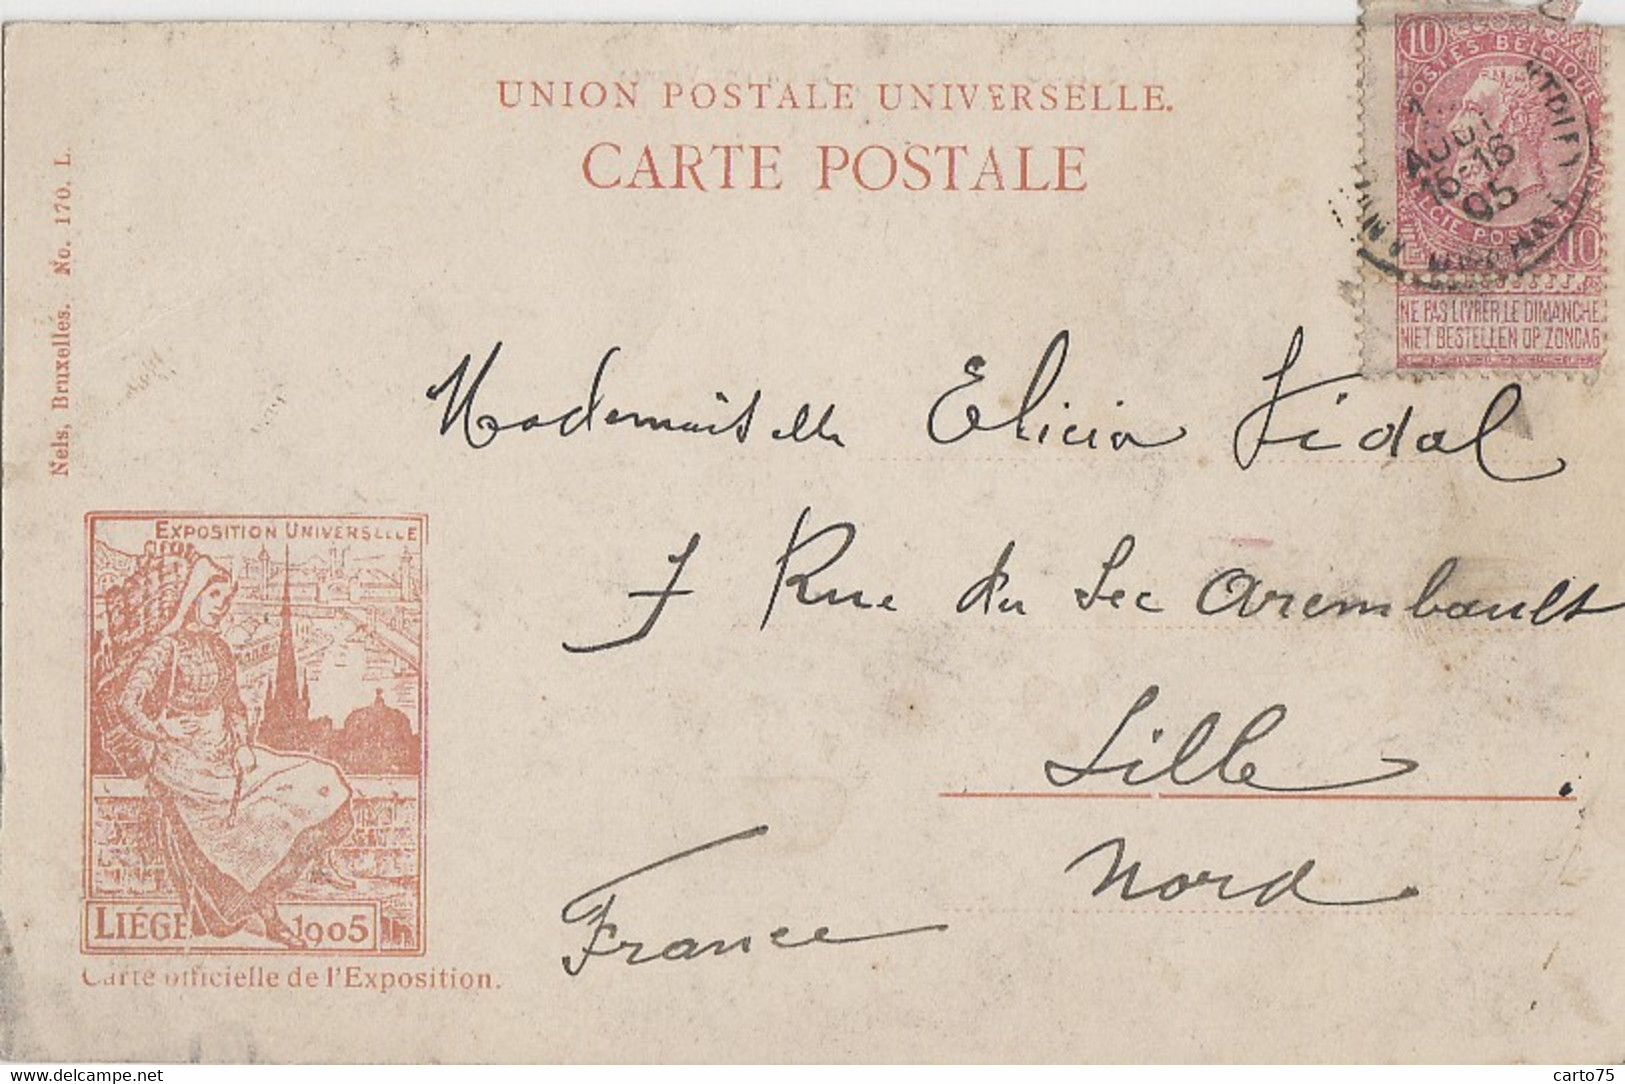 UNION POSTALE UNIVERSELLE.
CARTE POSTALE
Nels, Bruxelles. No. 170. L.
10
POSTES BELGIQUE
AOUT
16
05
10
NE PAS LIVRER LE DIMANCHE
NIET BESTELLEN OP ZONDAG
Mademoiselle Elicia Vidal
7 Rue du Sec Arembault
Lille.
Nord
France
EXPOSITION UNIVERSELLE
LIÉGE 1905
Carte officielle de l'Exposition.
delcampe.net
carto75